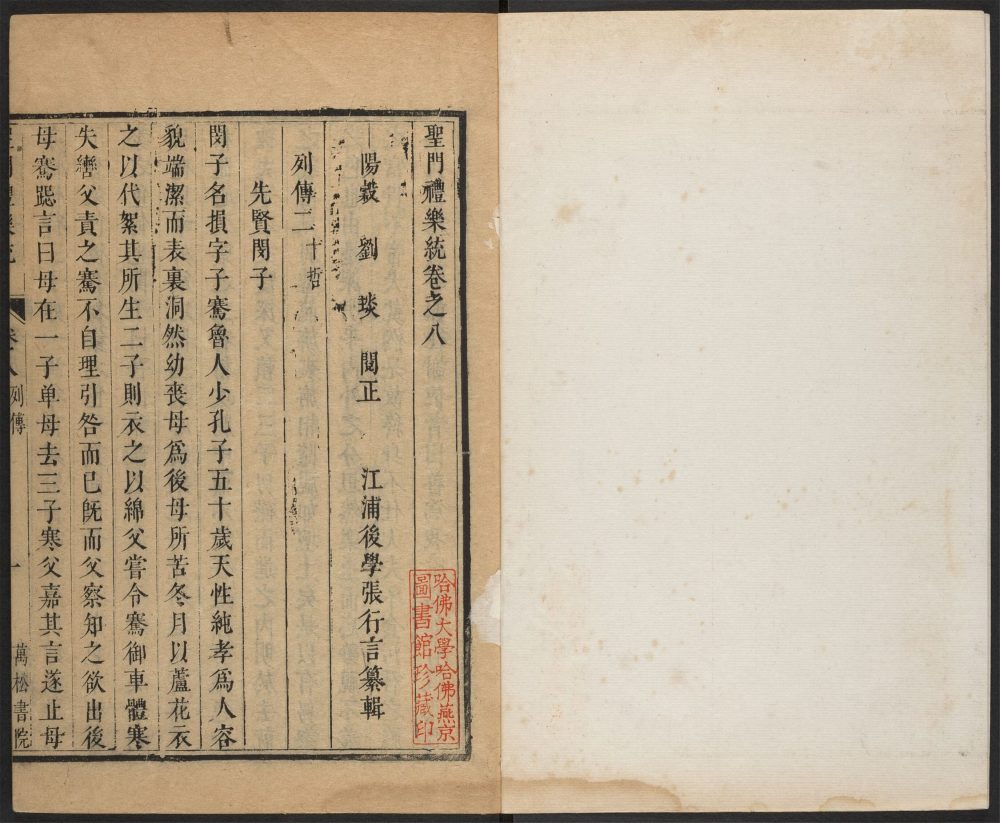 聖門禮樂統卷之八
陽穀 劉琰 閱正 江浦後學張行言纂輯
列傳二 十哲
先賢閔子
閔子名損字子騫魯人少孔子五十歲天性純孝爲人容
貌端潔而表裏洞然幼喪母爲後母所苦冬月以蘆花衣
之以代絮其所生二子則衣之以綿父嘗令騫御車體寒
失轡父責之騫不自理引咎而已旣而父察知之欲出後
母騫跽言曰母在一子单母去三子寒父嘉其言遂止母
列傳 一 萬松書院
哈佛大學哈佛燕京
圖書館珍藏印